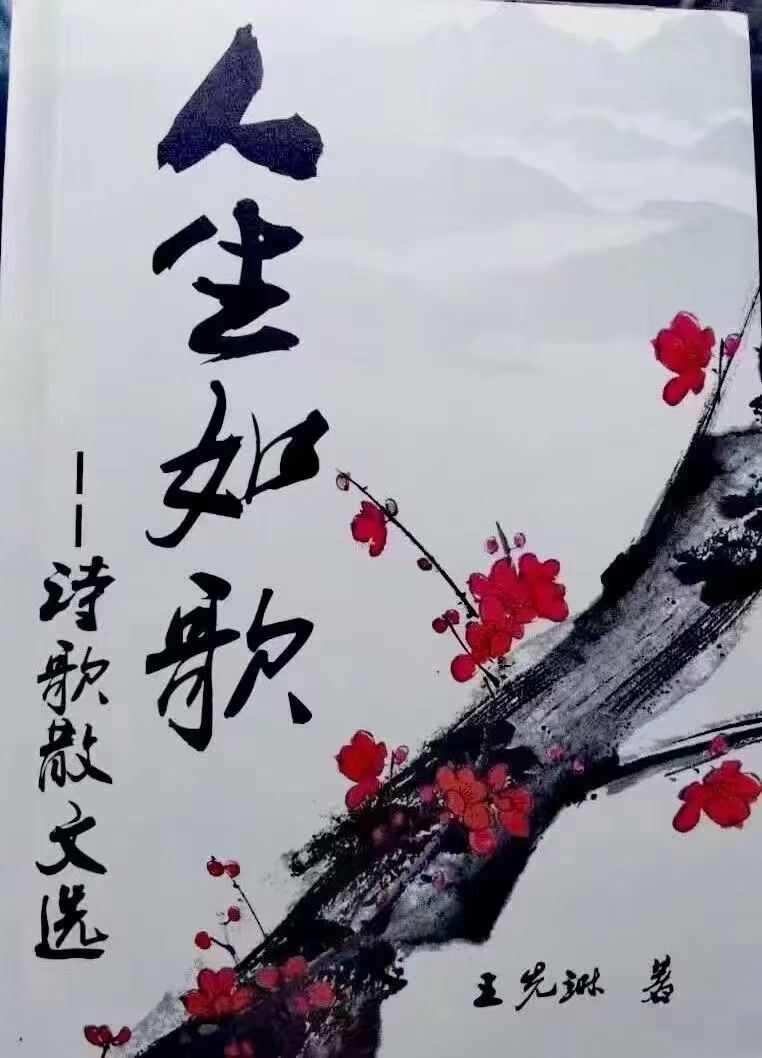 人生如歌
——诗歌散文选
王先琳 著